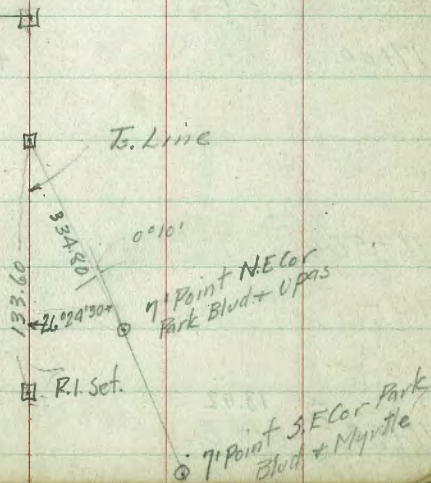 Tr. Line
334.80
0°10'
133.60
26°24'30"
7' Point N.E Cor
Park Blvd + Upas
R.I. Set.
7' Point S.E Cor Park
Blvd + Myrtle